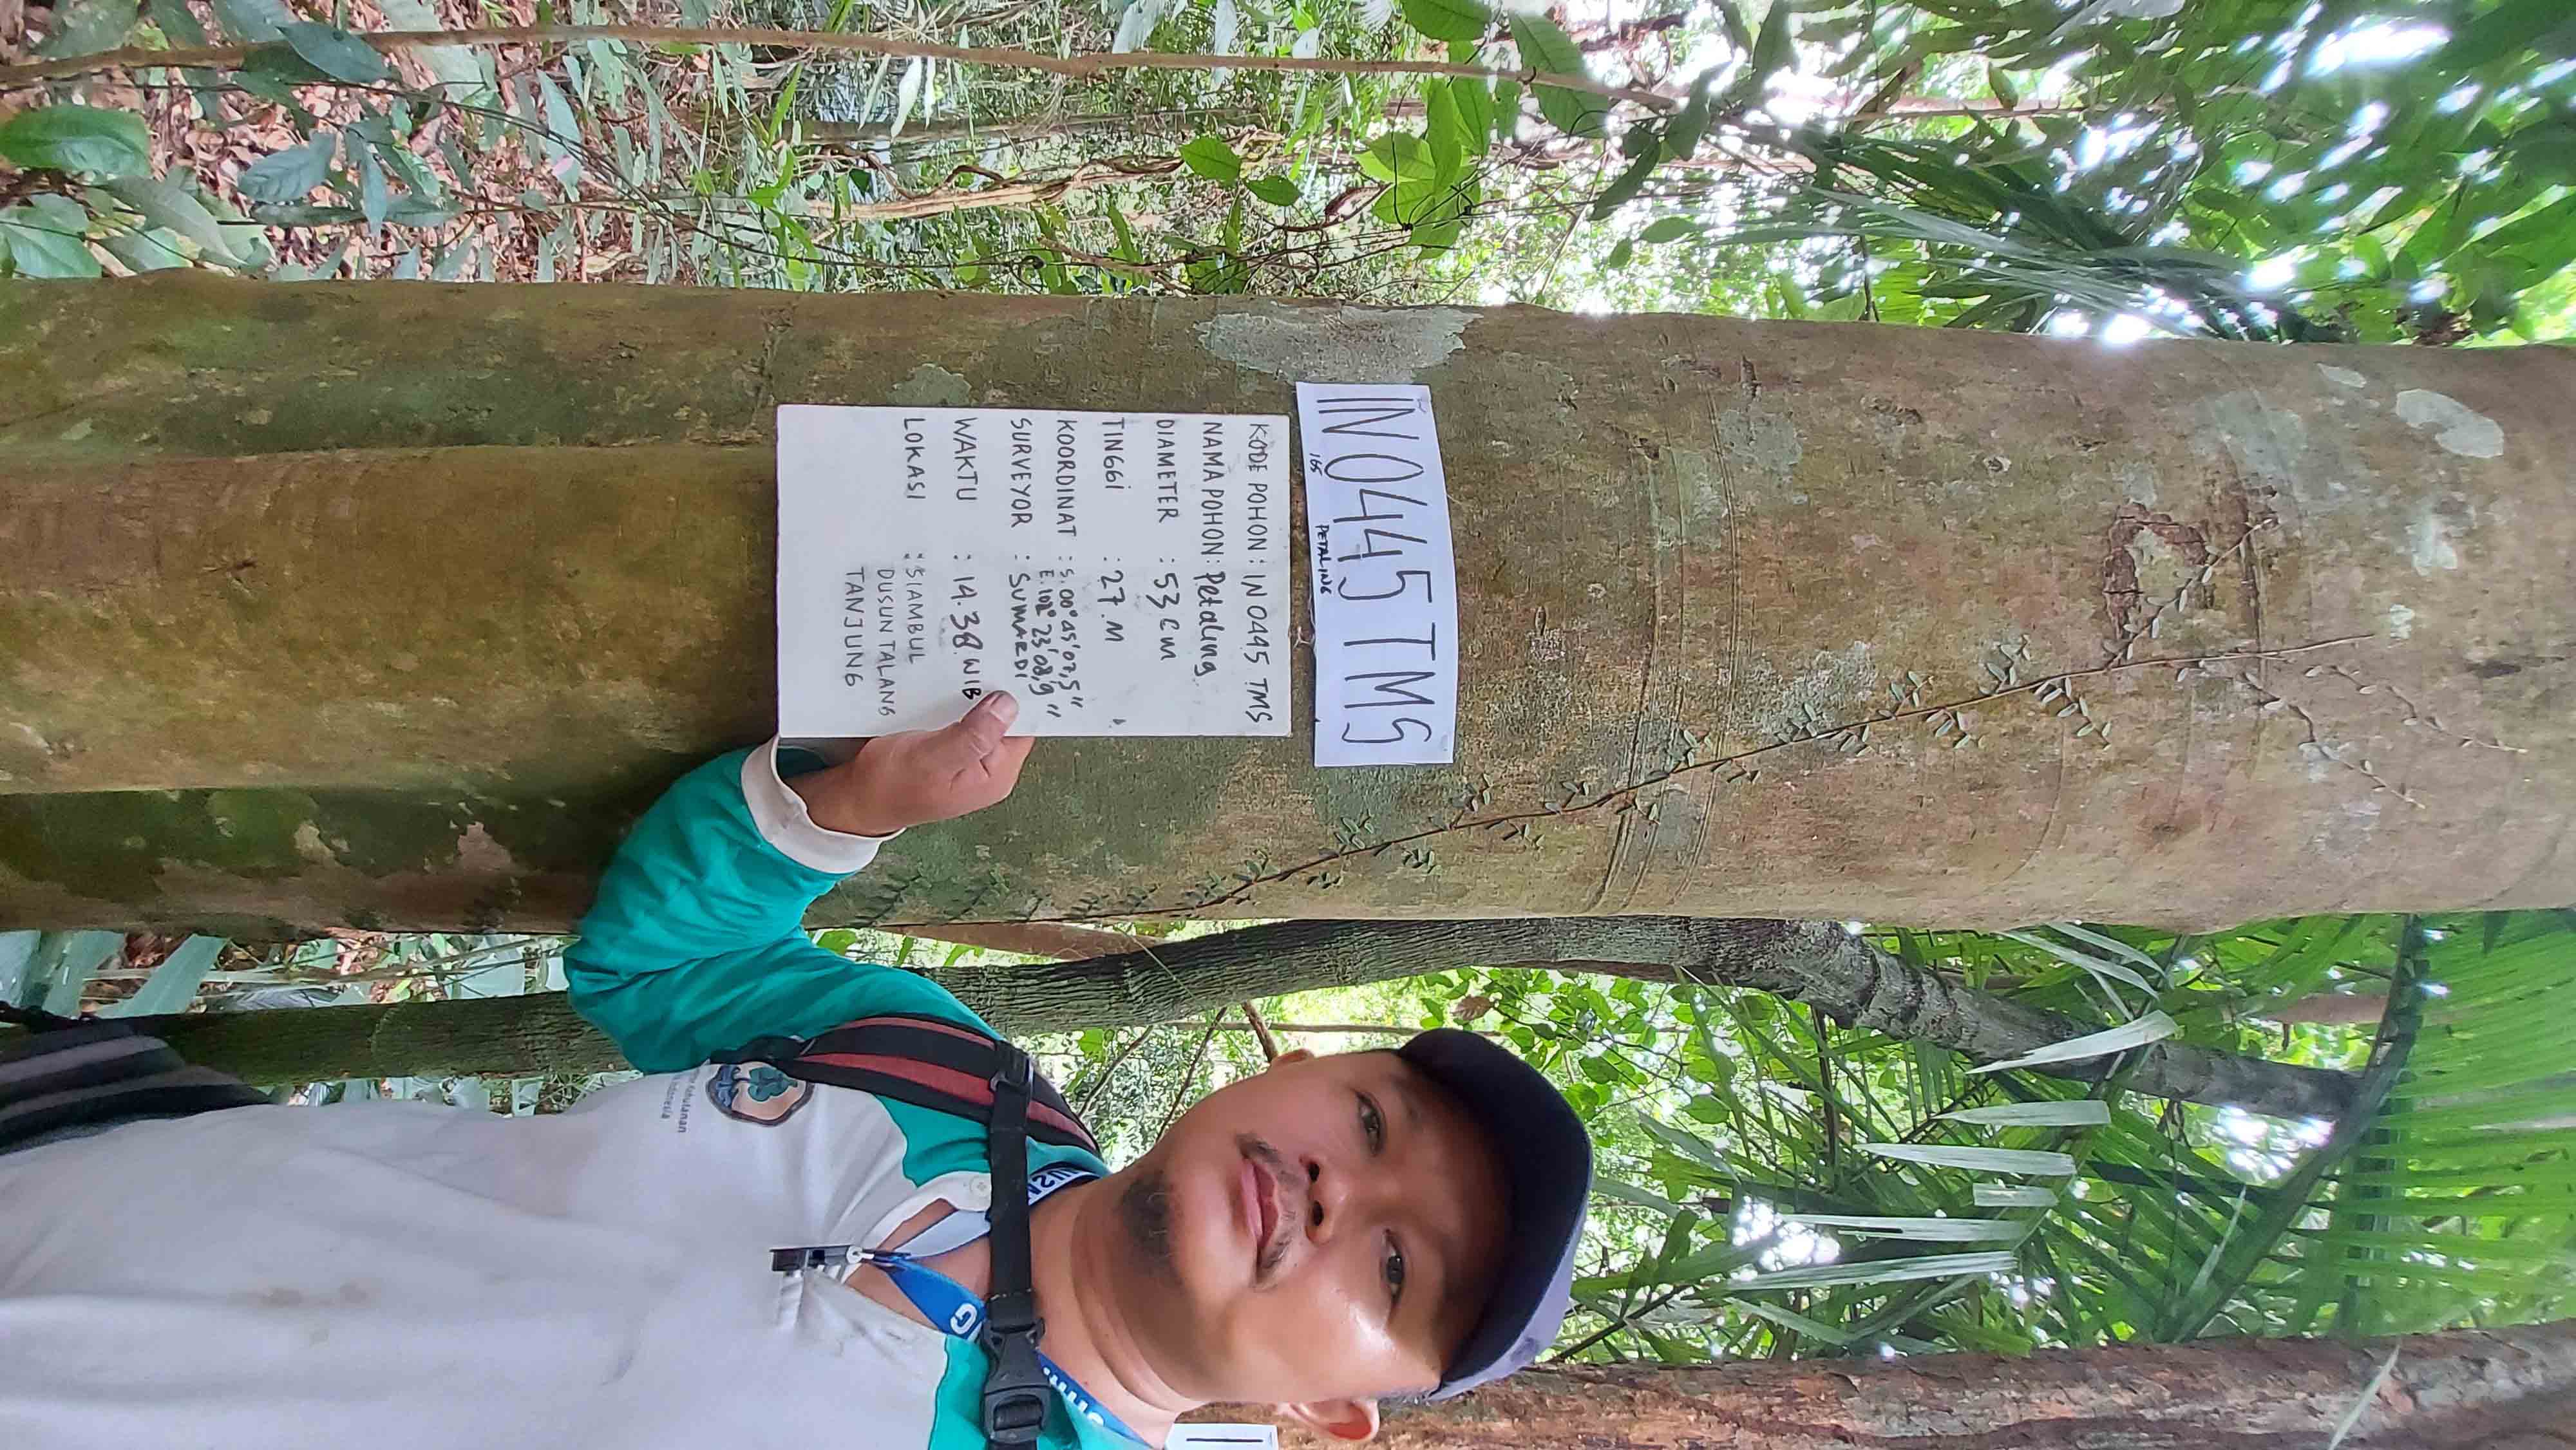 IN0445 TMS
165 PETALING
KODE POHON : IN 0445 TMS
NAMA POHON : Petaling
DIAMETER : 53 cm
TINGGI : 27 M
KOORDINAT : S. 00° 45' 07,5"
E. 102° 23' 08,9"
SURVEYOR : SUMARDI
WAKTU : 14.38 WIB
LOKASI : SIAMBUL
DUSUN TALANG
TANJUNG